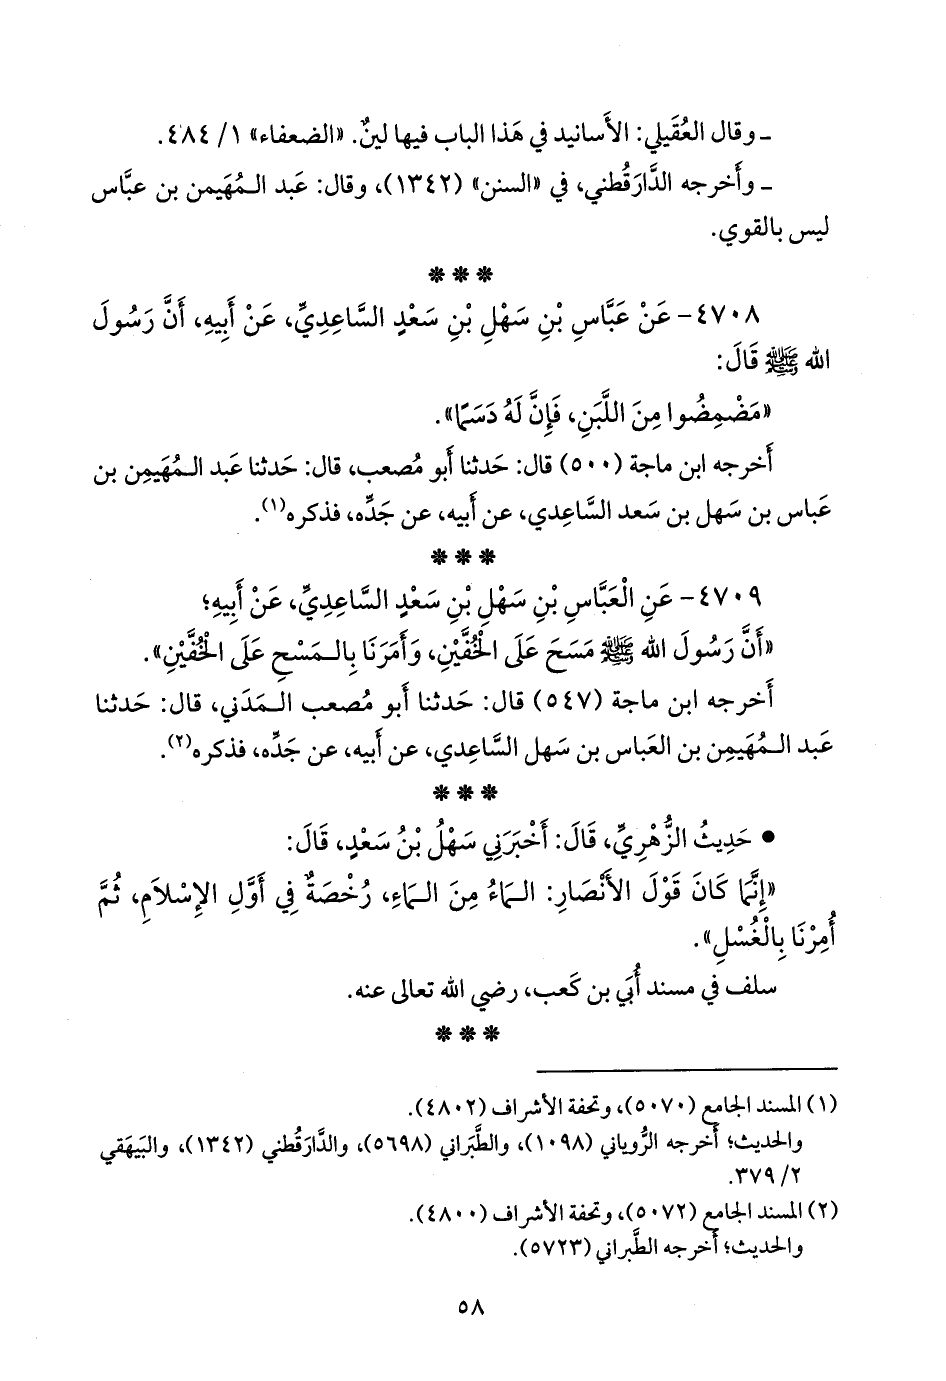 ـ وقال العُقَيلي: الأَسانيد في هَذا الباب فيها لينٌ. «الضعفاء» ١/ ٤٨٤.
ـ وأَخرجه الدَّارَقُطني، في «السنن» (١٣٤٢)، وقال: عَبد الـمُهَيمن بن عبَّاس
ليس بالقوي.
* * *
٤٧٠٨- عَنْ عَبَّاسِ بْنِ سَهْلِ بْنِ سَعْدٍ السَّاعِدِيِّ، عَنْ أَبِيهِ، أَنَّ رَسُولَ
الله ﷺ قَالَ:
«مَضْمِضُوا مِنَ اللَّبَنِ، فَإِنَّ لَهُ دَسَمًا».
أَخرجه ابن ماجة (٥٠٠) قال: حَدثنا أَبو مُصعب، قال: حَدثنا عَبد الـمُهَيمِن بن
عَباس بن سَهل بن سَعد السَّاعِدي، عن أَبيه، عن جَدِّه، فذكره(١).
* * *
٤٧٠٩- عَنِ الْعَبَّاسِ بْنِ سَهْلِ بْنِ سَعْدٍ السَّاعِدِيِّ، عَنْ أَبِيهِ؛
«أَنَّ رَسُولَ الله ﷺ مَسَحَ عَلَى الْخُفَّيْنِ، وَأَمَرَنَا بِالـمَسْحِ عَلَى الْخُفَّيْنِ».
أَخرجه ابن ماجة (٥٤٧) قال: حَدثنا أَبو مُصعب الـمَدَني، قال: حَدثنا
عَبد الـمُهَيمِن بن العَباس بن سَهل السَّاعِدي، عن أَبيه، عن جَدِّه، فذكره(٢).
* * *
• حَدِيثُ الزُّهْرِيِّ، قَالَ: أَخْبَرَنِي سَهْلُ بْنُ سَعْدٍ، قَالَ:
«إِنَّمَا كَانَ قَوْلَ الأَنْصَارِ: الـمَاءُ مِنَ الـمَاءِ، رُخْصَةٌ فِي أَوَّلِ الإِسْلاَمِ، ثُمَّ
أُمِرْنَا بِالْغُسْلِ».
سلف في مسند أُبَي بن كَعب، رضي الله تعالى عنه.
* * *
(١) المسند الجامع (٥٠٧٠)، وتحفة الأشراف (٤٨٠٢).
والحديث؛ أَخرجه الرُّوياني (١٠٩٨)، والطَّبَراني (٥٦٩٨)، والدَّارَقُطني (١٣٤٢)، والبَيهَقي
٢/ ٣٧٩.
(٢) المسند الجامع (٥٠٧٢)، وتحفة الأشراف (٤٨٠٠).
والحديث؛ أَخرجه الطَّبراني (٥٧٢٣).
٥٨